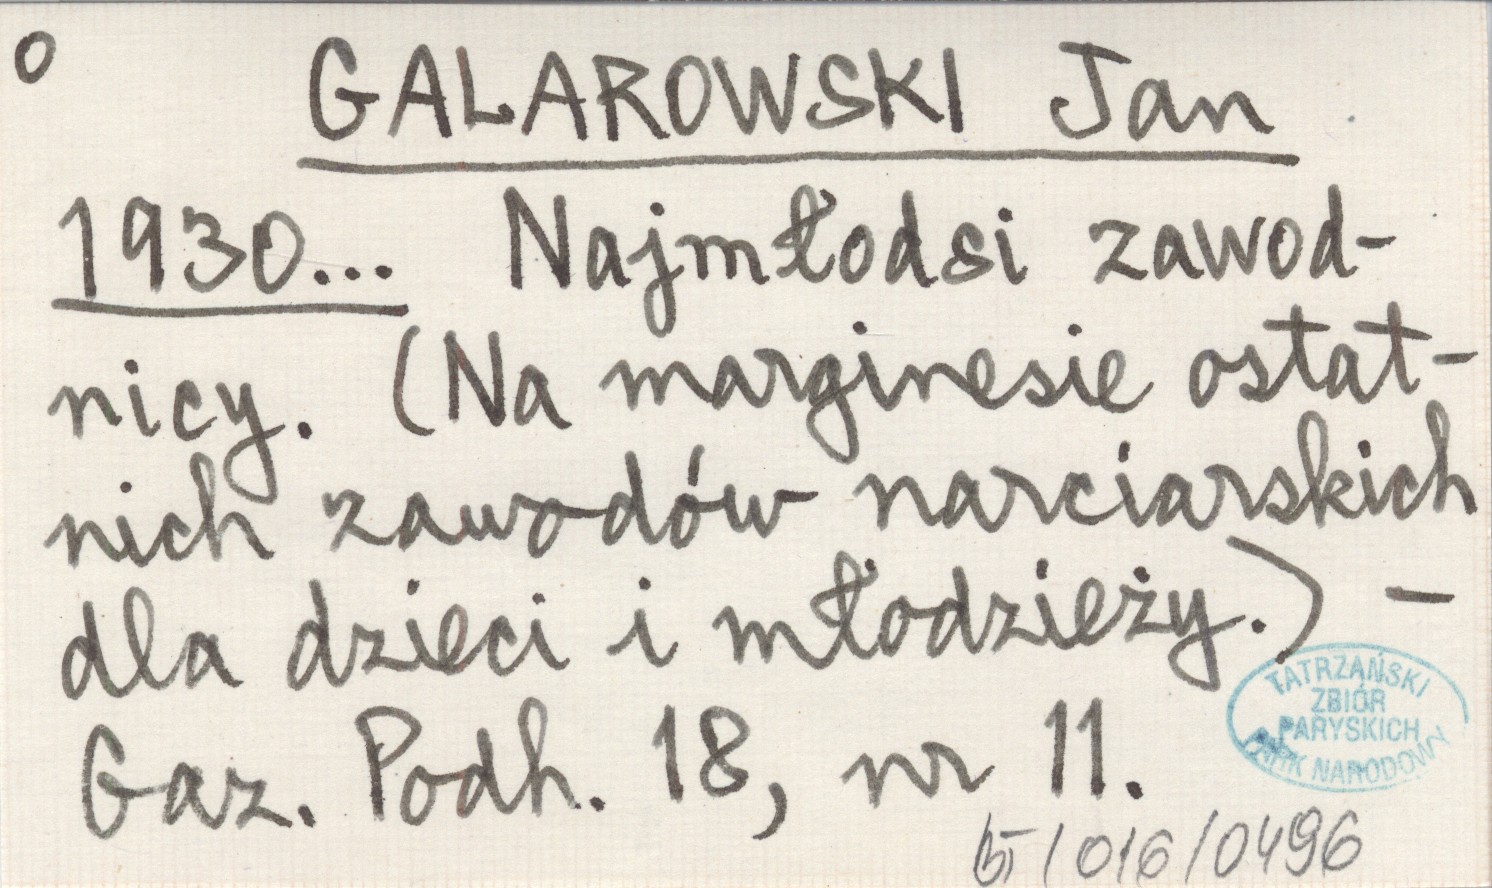 o
GALAROWSKI Jan
1930... Najmłodsi zawod-
nicy. (Na marginesie ostat-
nich zawodów narciarskich
dla dzieci i młodzieży.) -
Gaz. Podh. 18, nr 11.
TATRZAŃSKI
ZBIÓR
PARYSKICH
PARK NARODOWY
/016/0496